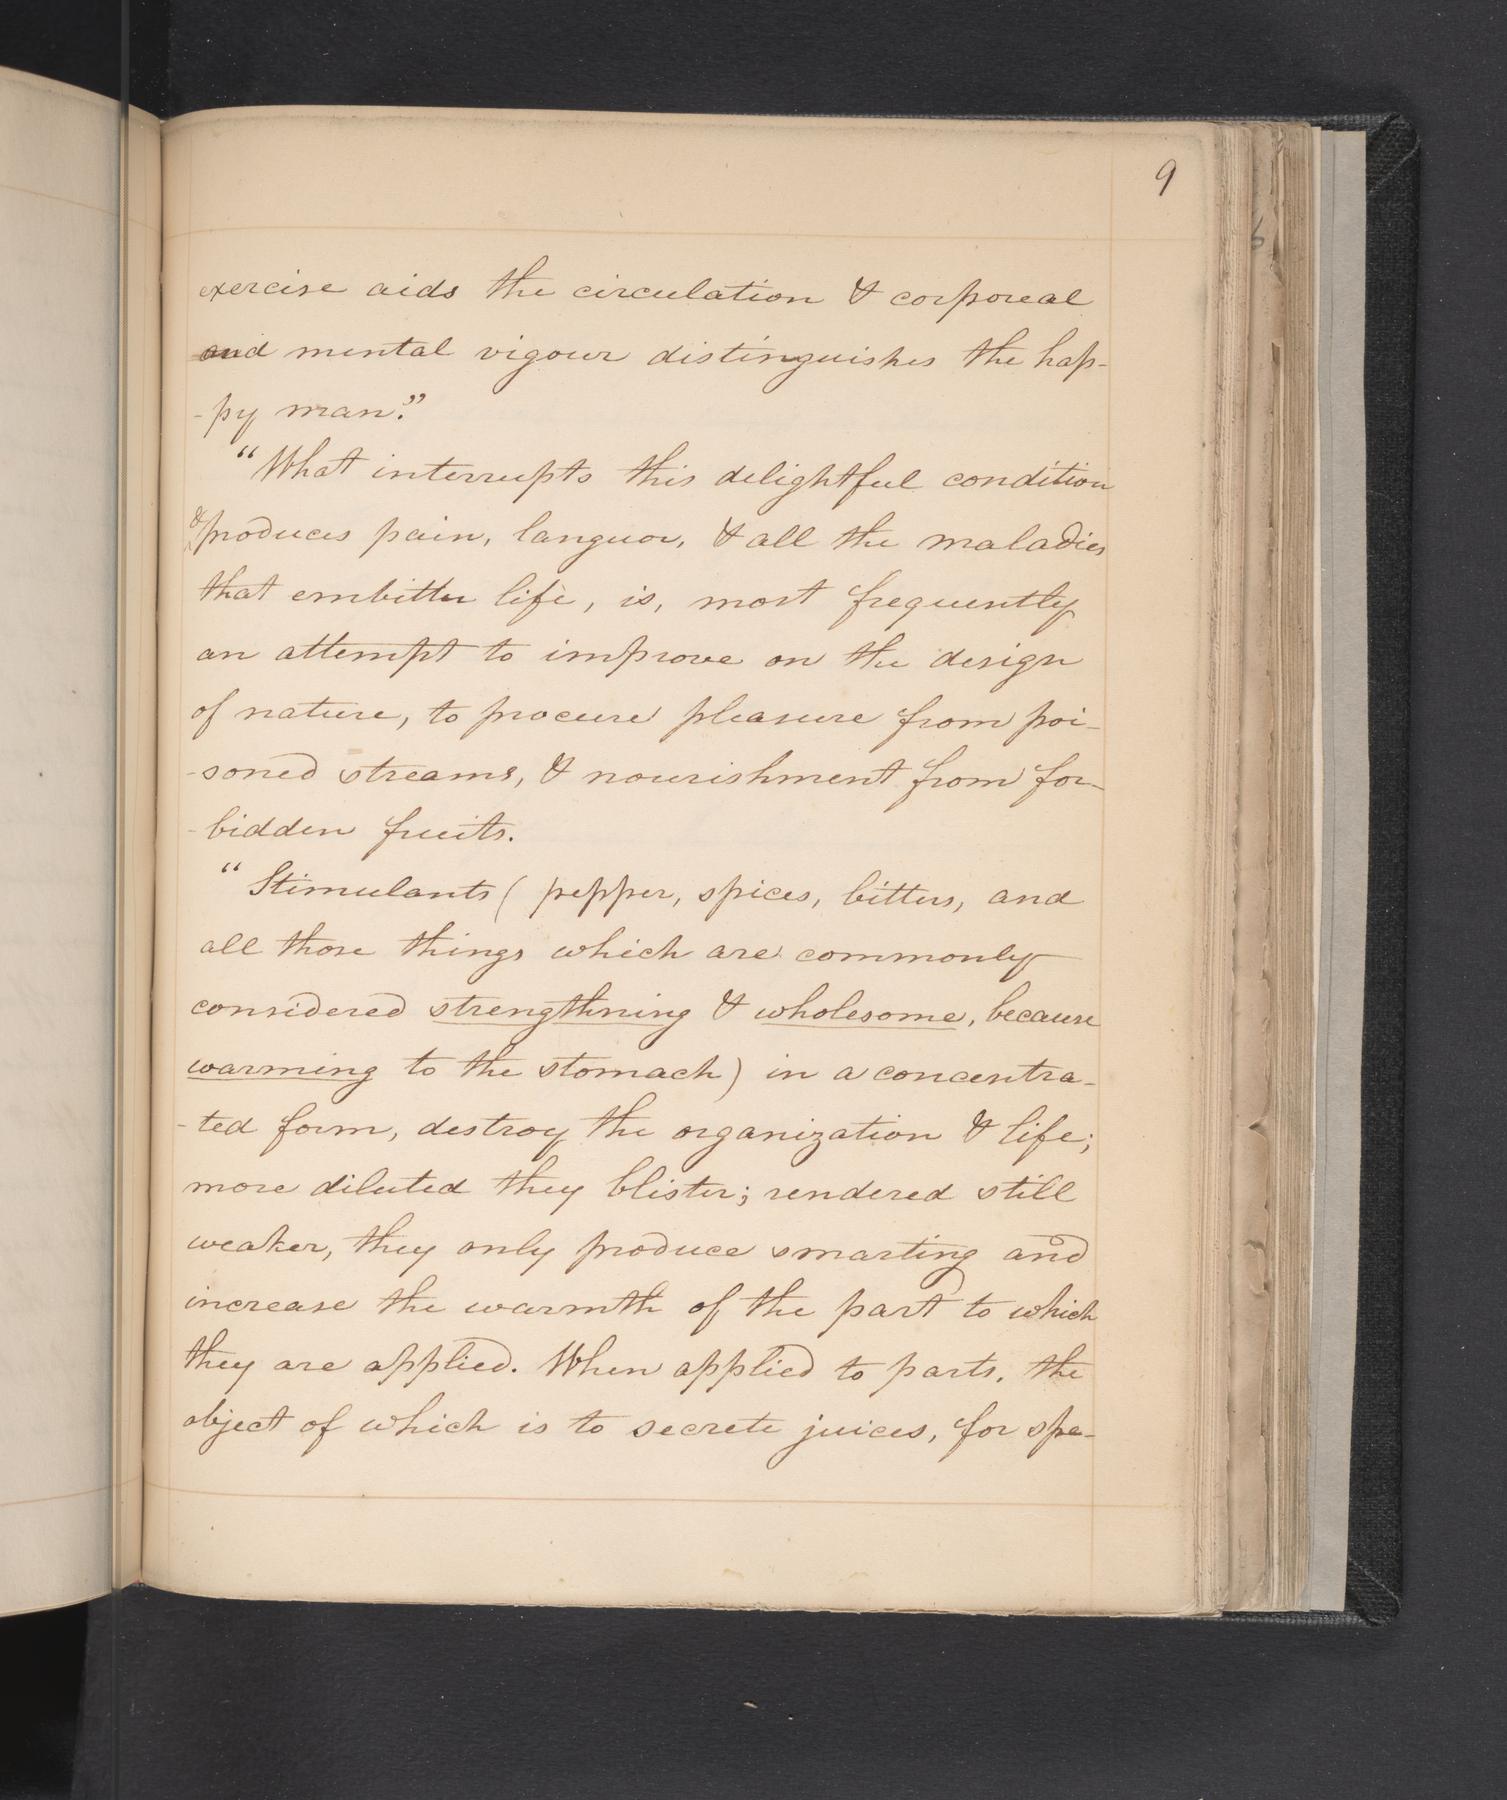 9
exercise aids the circulation & corporeal
and mental vigour distinguishes the hap-
-py man."
"What interrupts this delightful condition
& produces pain, languor, & all the maladies
that embitter life, is, most frequently
an attempt to improve on the design
of nature, to procure pleasure from poi-
-soned streams, & nourishment from for-
-bidden fruits.
"Stimulants ( pepper, spices, bitters, and
all those things which are commonly
considered strengthning & wholesome, because
warming to the stomach) in a concentra-
-ted form, destroy the organization & life;
more diluted they blister; rendered still
weaker, they only produce smarting and
increase the warmth of the part to which
they are applied. When applied to parts, the
object of which is to secrete juices, for spe-
6